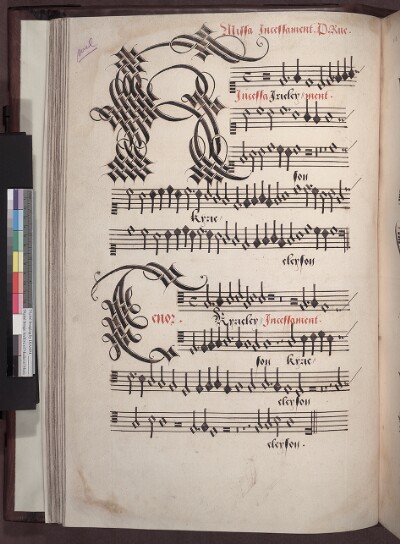 Missa Incessament. P. Rue.
Incessa kyrieley / ment.
son
kyrie
eleyson
Tenor. Kyrieley / Incessament.
son kyrie /
eleyson
eleyson.